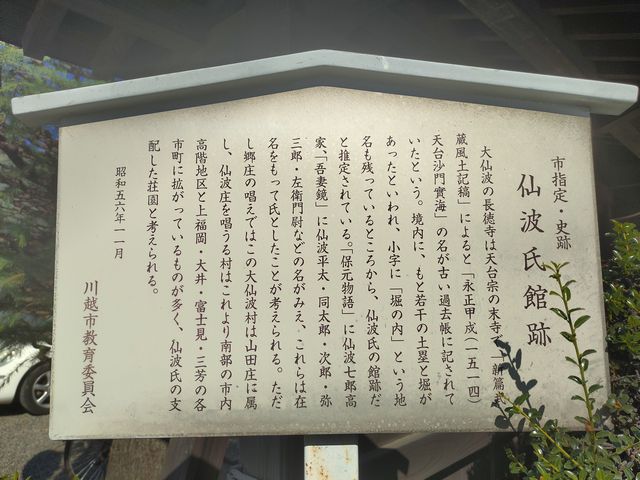 市指定・史跡
仙波氏館跡
大仙波の長徳寺は天台宗の末寺で「新篇武
蔵風土記稿」によると「永正甲戌(一五一四)
天台沙門實海」の名が古い過去帳に記されて
いたという。境内に、もと若干の土塁と堀が
あったといわれ、小字に「堀の内」という地
名も残っているところから、仙波氏の館跡だ
と推定されている。「保元物語」に仙波七郎高
家、「吾妻鏡」に仙波平太・同太郎・次郎・弥
三郎・左衛門尉などの名がみえ、これらは在
名をもって氏としたことが考えられる。ただ
し郷庄の唱えではこの大仙波村は山田庄に属
し、仙波庄を唱うる村はこれより南部の市内
高階地区と上福岡・大井・富士見・三芳の各
市町に拡がっているものが多く、仙波氏の支
配した荘園と考えられる。
昭和五六年一一月
川越市教育委員会